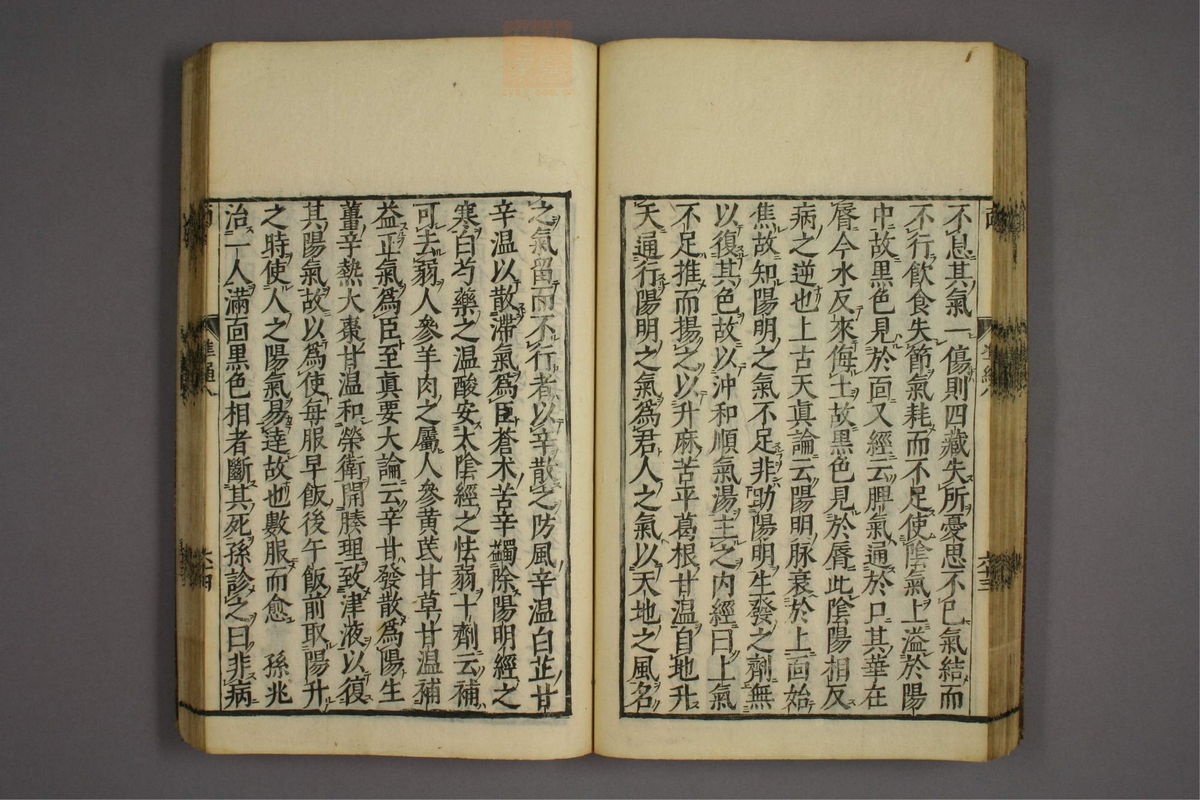 不息其氣一傷則四藏失所憂思不已氣結而
不行飲食失節氣耗而不足使陰氣上溢於陽
中故黑色見於面又經云脾氣通於口其華在
脣今水反來侮土故黑色見於脣此陰陽相反
病之逆也上古天眞論云陽明脉衰於上面始
焦故知陽明之氣不足非助陽明生發之劑無
以復其色故以沖和順氣湯主之内經曰上氣
不足推而揚之以升麻苦平葛根甘温自地升
天通行陽明之氣爲君人之氣以天地之風名
之氣留而不行者以辛散之防風辛温白芷甘
辛温以散滯氣爲臣蒼朮苦辛蠲除陽明經之
寒白芍藥之温酸安太陰經之怯弱十劑云補
可去弱人參羊肉之屬人參黄芪甘草甘温補
益正氣爲臣至眞要大論云辛甘發散爲陽生
薑辛熱大棗甘温和榮衛開腠理致津液以復
其陽氣故以爲使每服早飯後午飯前取陽升
之時使人之陽氣易達故也數服而愈　孫兆
治一人滿面黑色相者斷其死孫診之曰非病